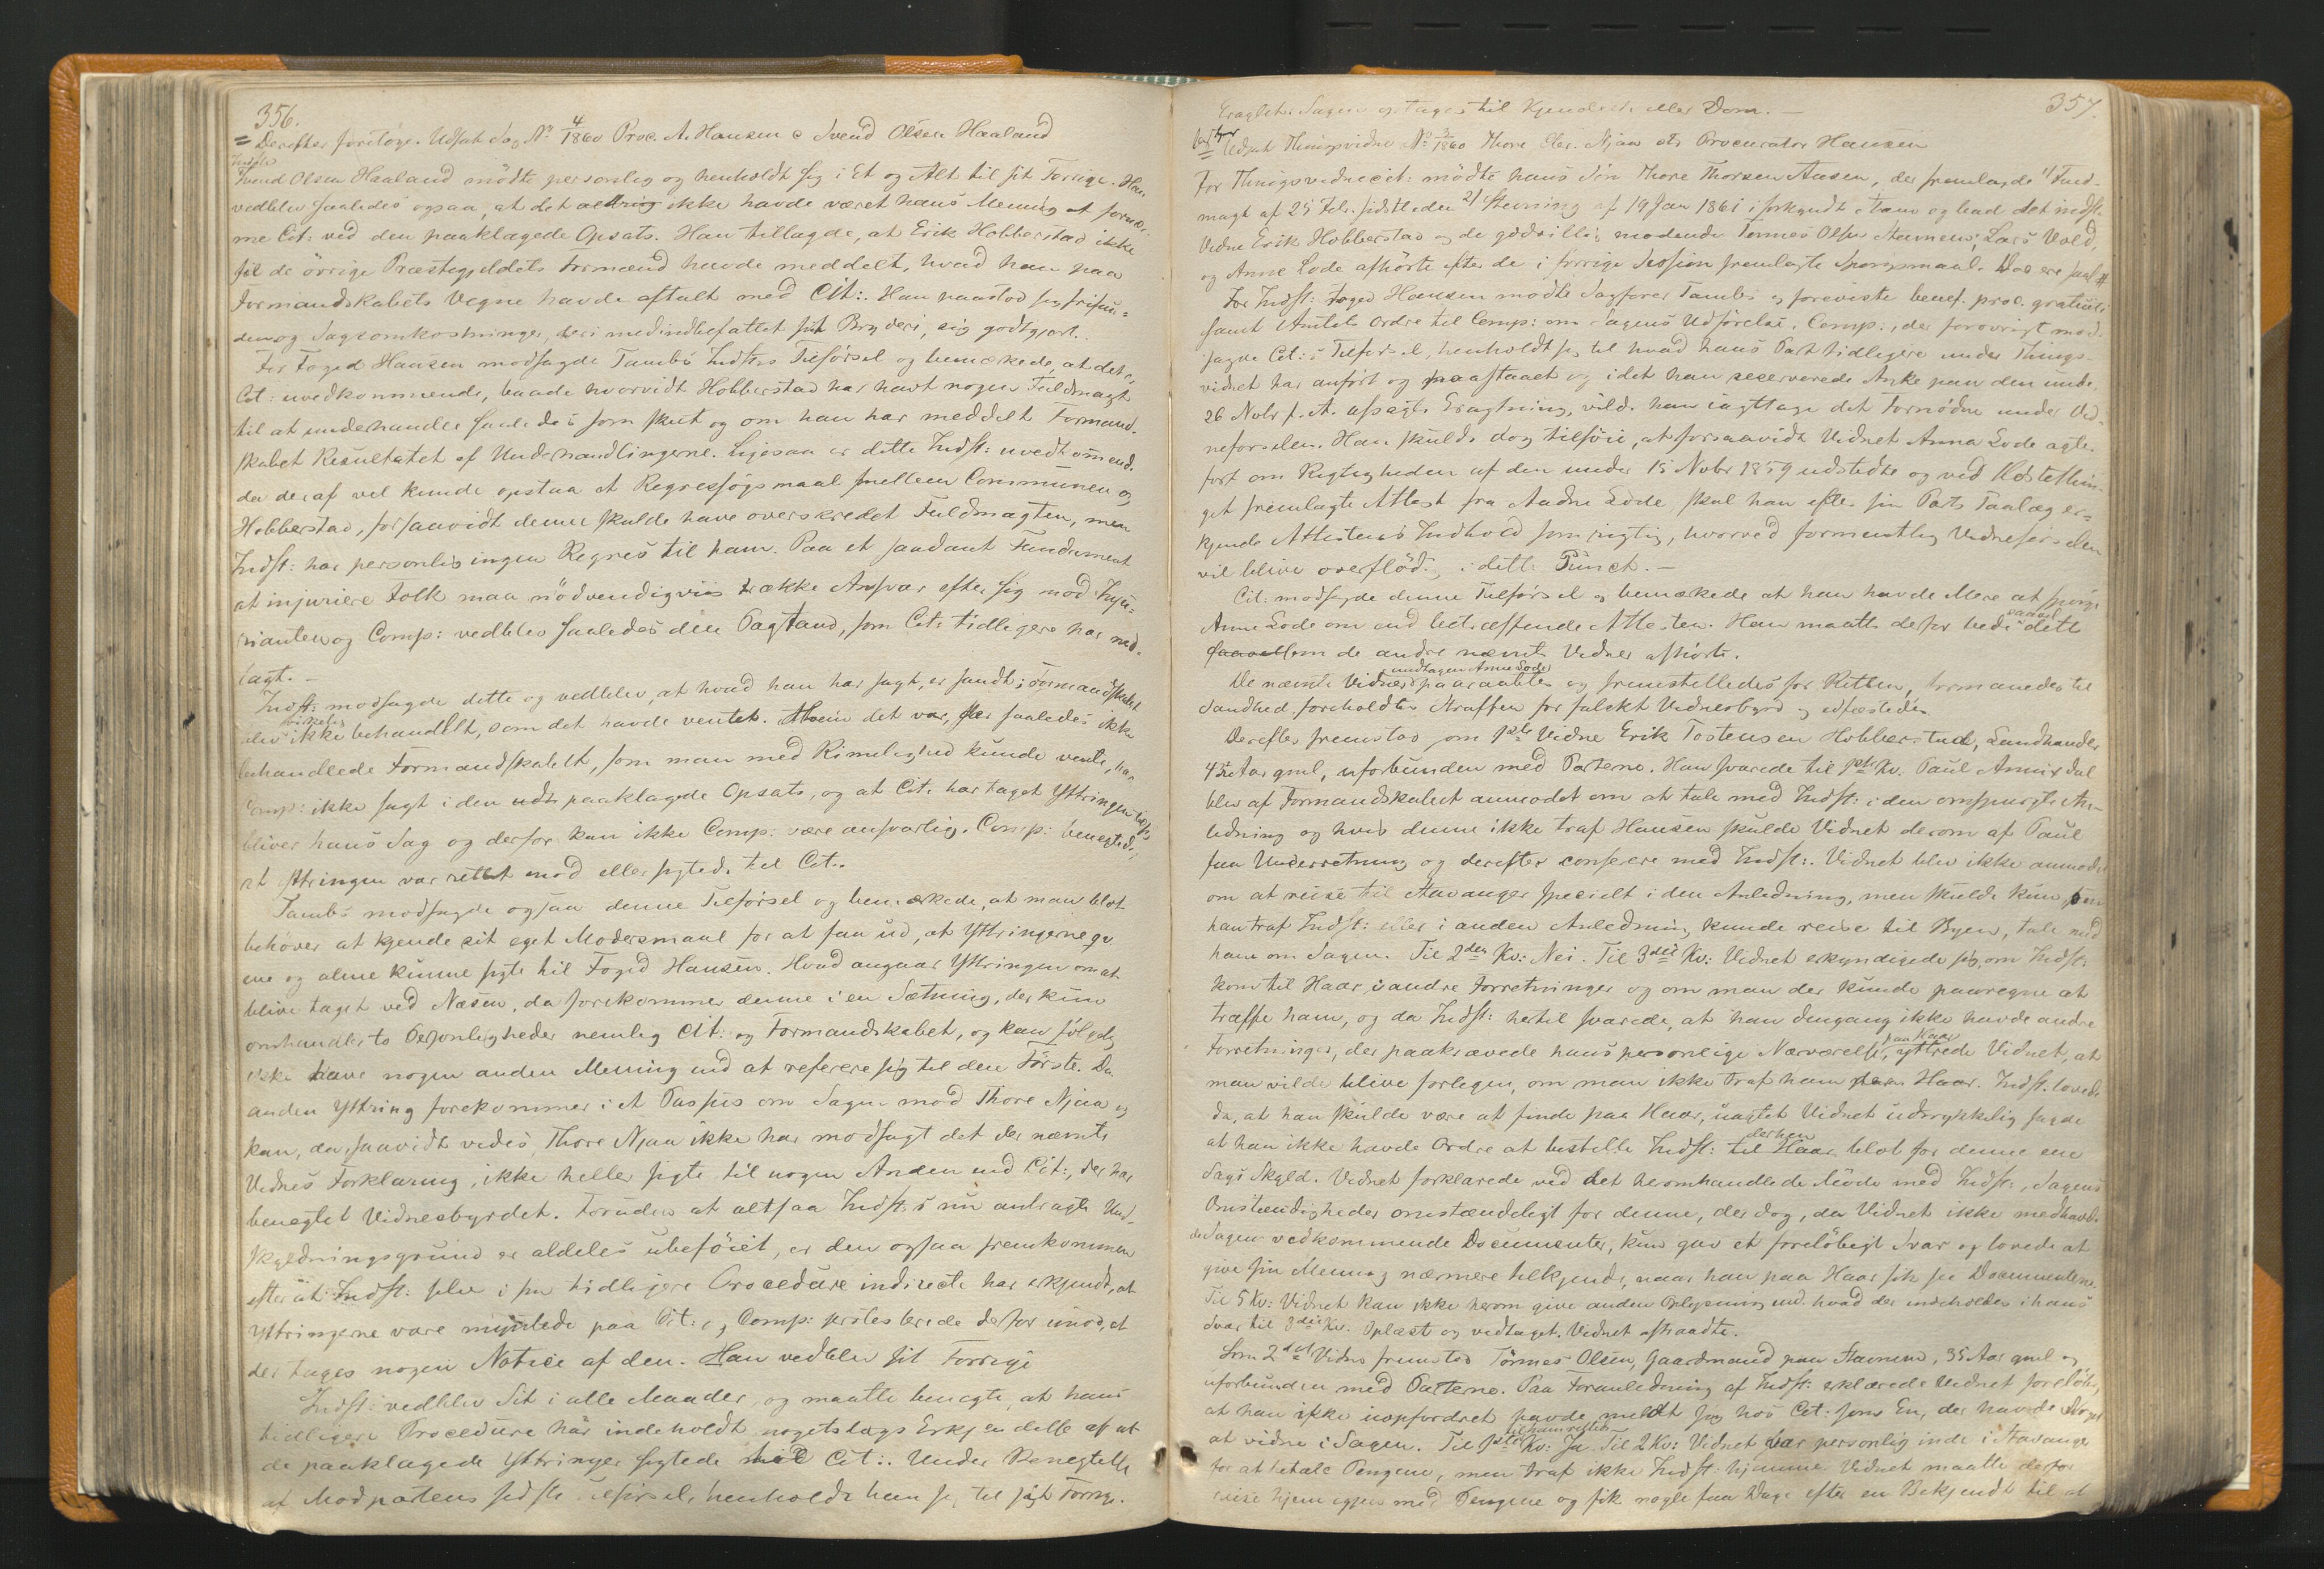 356.
= Derefter foretoges Udsat Sag No 4/1860 Proc. A. Hansen c Svend Olsen Haaland
Indst:
Svend Olsen Haaland mødte personlig og henholdt sig i Et og Alt til sit Forrige. Han
vedblev saaledes ogsaa, at det ikke havde været hans Mening at fornær-
me Cit: ved den paaklagede Opsats. Han tillagde, at Erik Hobberstad ikke
til de øvrige Præstegjeldets Formænd havde meddelt, hvad han paa
Formandskabets Vegne havde aftalt med Cit:. Han paastod sig frifun-
den og Sagsomkostninger, deri medindbefattet sit Bryderi, sig godtgjort.
For Foged Hansen modsagde Tambs Indst:s Tilførsel og bemærkede, at det er
Cit: uvedkommende, baade hvorvidt Hobberstad har havt nogen Fuldmagt
til at underhandle saaledes som skeet og om han har meddelt Formand-
skabet Resultatet af Underhandlingerne. Ligesaa er dette Indst: uvedkommende
da deraf vel kunde opstaa et Regressøgsmaal mellem Communen og
Hobberstad, forsaavidt denne skulde have overskredet Fuldmagten, men
Indst: har personlig ingen Regres til ham. Paa et saadant Fundament
at injuriere Folk maa nødvendigviis trække Ansvar efter sig mod Inju-
rianten og Comp: vedblev saaledes den Paastand, som Cit: tidligere har ned-
lagt. –
Indst: modsagde dette og vedblev, at hvad han har sagt, er sandt; Formandskabet
rimelig
blev ikke behandlet, som det havde ventet. det var, der saaledes ikke
behandlede Formandskabet, som man med Rimelighed kunde vente, har
Comp: ikke sagt i den paaklagede Opsats, og at Cit: har taget Yttringen til sig
bliver hans Sag og derfor kan ikke Comp: være ansvarlig. Comp: benegtede,
at Yttringen var rettet mod eller sigtede til Cit:.
Tambs modsagde ogsaa denne Tilførsel og bemærkede, at man blot
behøver at kjende sit eget Modersmaal for at faa ud, at Yttringerne
ene og alene kunne sigte til Foged Hansen. Hvad angaar Yttringen om at
blive taget ved Næsen, da forekommer denne i en Sætning, der kun
omhandler to Personligheder nemlig Cit: og Formandskabet, og kan følgelig
ikke have nogen anden Mening end at referere sig til den Første. Den
anden Yttring forekommer i et Passus om Sagen mod Thore Njaa og
kan, da, saavidt vides, Thore Njaa ikke har modsagt det der nævnte
Vidnes Forklaring, ikke heller sigte til nogen Anden end Cit:, der har
benegtet Vidnesbyrdet. Foruden at altsaa Indst:s nu antragte Und-
skyldningsgrund er aldeles ubeføiet, er den ogsaa fremkommen
efter at Indst: selv i sin tidligere Procedure indirecte har erkjendt, at
Yttringerne vare myntede paa Cit: og Comp: protesterede derfor imod, at
der tages nogen Notice af den. Han vedblev sit Forrige
Indst: vedblev Sit i alle Maader, og maatte benegte, at hans
tidligere Procedure har indeholdt nogetslags Erkjendelse af at
de paaklagede Yttringer sigtede til Cit:. Under Benegtelse
af Modpartens sidste Tilførsel, henholdt han sig til sit Forrige.
357.
Eragtet: Sagen optages til Kjendelse eller Dom. –
= Udsat Thingsvidne No 3/1860 Thore Njaa ctr Procurator Hansen
For Thingsvidnecit: mødte hans Søn Thore Thorsen Aasen, der fremlagde 1/ Fuld-
magt af 25 Feb. sidstleden 2/ Stevning af 19 Jan 1861 i forkyndt Stand og bad det indst.
Vidne Erik Hobberstad og de godvillig mødende Tønnes Olsen Stavnem, Lars Vold,
og Anne Lode afhørte efter de i forrige Session fremlagte Spørgsmaal.
For Indst: Foged Hansen mødte Sagfører Tambs og foreviste benef. proc. gratuite
samt Amtets Ordre til Comp: om Sagens Udførelse. Comp:, der forøvrigt mod-
sagde Cit:s Tilførsel, henholdt sig til hvad hans Part tidligere under Things-
vidnet har anført og paastaaet og idet han reserverede Anke paa den under
26 Novbr f. A. afsagte Eragtning, vilde han iagttage det Fornødne under Vid-
neførselen. Han skulde dog tilføie, at forsaavidt Vidnet Anna Lode agtes
ført om Rigtigheden af den under 15 Novbr 1859 udstedte og ved Høstethin-
get fremlagte Attest fra Andre Lode, skal han efter sin Parts Paalæg er-
kjende Attestens Indhold som rigtig, hvorved formentlig Vidneførselen
vil blive overflødig i dette Punct. –
Cit: modsagde denne Tilførsel og bemærkede at han havde Mere at spørge
Anne Lode om end betræffende Attesten. Han maatte derfor bede dette
saavel
som de andre nævnte Vidner afhørte.
undtagen Anne Lode
De nævnte Vidner paaraabtes og fremstilledes for Retten, formanedes til
Sandhed foreholdtes Straffen for falskt Vidnesbyrd og edfæstedes.
Derefter fremstod som 1ste Vidne Erik Tostensen Hobberstad, Landhandler
43 Aar gml, uforbunden med Parterne. Han svarede til 1ste Kv. Paul Annisdal
blev af Formandskabet anmodet om at tale med Indst: i den omspurgte An-
ledning og hvis denne ikke traf Hansen skulde Vidnet derom af Paul
faa Underretning og derefter conferere med Indst:. Vidnet blev ikke anmodet
om at reise til Stavanger specielt i den Anledning, men skulde kun om
han traf Indst: eller i anden Anledning kunde reise til Byen, tale med
ham om Sagen. Til 2den Kv: Nei. Til 3die Kv: Vidnet erkyndigede sig om Indst:
kom til Haar i andre Forretninger og om man der kunde paaregne at
træffe ham, og da Indst: hertil svarede, at han dengang ikke havde andre
paa Haar
Forretninger, der paakrævede hans personlige Nærværelse, yttrede Vidnet, at
man vilde blive forlegen, om man ikke traf ham paa Haar. Indst. lovede
da, at han skulde være at finde paa Haar, uagtet Vidnet udtrykkelig sagde
derhen
at han ikke havde Ordre at bestille Indst: til Haar blot for denne ene
Sags Skyld. Vidnet forklarede ved det heromhandlede Møde med Indst:, Sagens
Omstændigheder omstændeligt for denne, der dog, da Vidnet ikke medhavde
de Sagen vedkommende Documenter, kun gav et foreløbigt Svar og lovede at
give sin Mening nærmere tilkjende, naar han paa Haar fik see Documenterne.
Til 5 Kv: Vidnet kan ikke herom give anden Oplysning end hvad der indeholdes i hans
Svar til 3die Kv. Oplæst og vedtaget. Vidnet aftraadte.
Som 2det Vidne fremstod Tønnes Olsen, Gaardmand paa Stavnem, 35 Aar gml og
uforbunden med Parterne. Paa Foranledning af Indst: erklærede Vidnet foreløbig
at han ikke uopfordret havde meldt sig hos Cit: som En, der havde Noget
at vidne i Sagen. Til 1ste Kv: Ja. Til 2 Kv: Vidnet var personlig inde i Stavanger
for at betale Pengene, men traf ikke Indst: hjemme. Vidnet maatte derfor
reise hjem igjen med Pengene og fik nogle faa Dage efter en Bekjendt til at